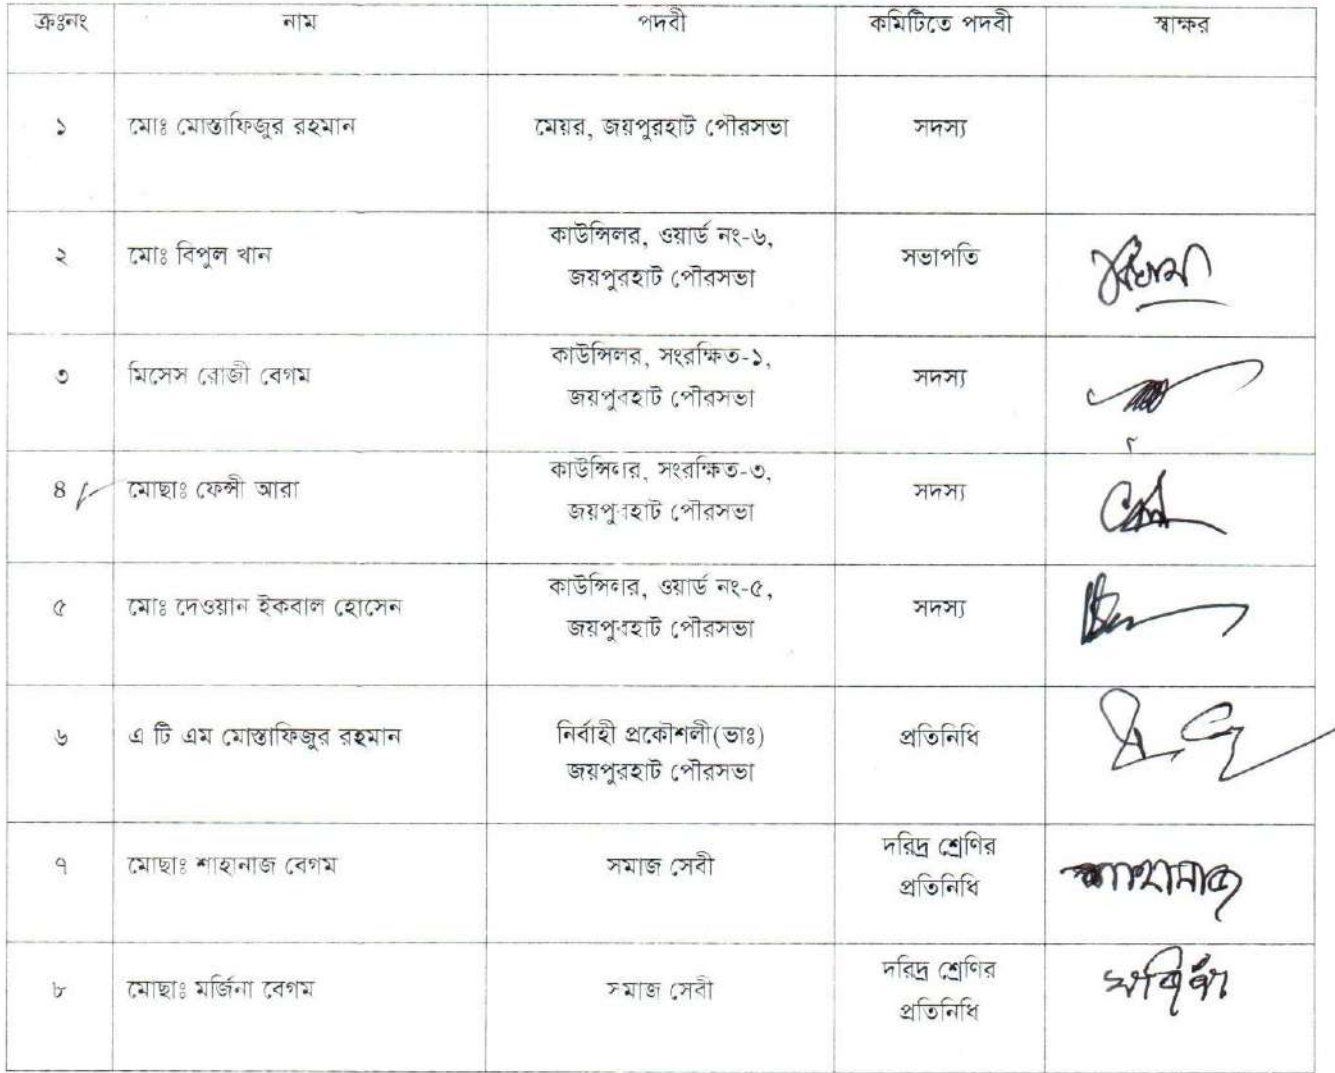 ক্রঃনং নাম পদবী কমিটিতে পদবী স্বাক্ষর
১ মোঃ মোস্তাফিজুর রহমান মেয়র, জয়পুরহাট পৌরসভা সদস্য
২ মোঃ বিপুল খান কাউন্সিলর, ওয়ার্ড নং-৬, সভাপতি
জয়পুরহাট পৌরসভা
৩ মিসেস রোজী বেগম কাউন্সিলর, সংরক্ষিত-১, সদস্য
জয়পুরহাট পৌরসভা
৪ মোছাঃ ফেন্সী আরা কাউন্সিলর, সংরক্ষিত-৩, সদস্য
জয়পুরহাট পৌরসভা
৫ মোঃ দেওয়ান ইকবাল হোসেন কাউন্সিলর, ওয়ার্ড নং-৫, সদস্য
জয়পুরহাট পৌরসভা
৬ এ টি এম মোস্তাফিজুর রহমান নির্বাহী প্রকৌশলী(ভাঃ) প্রতিনিধি
জয়পুরহাট পৌরসভা
৭ মোছাঃ শাহানাজ বেগম সমাজ সেবী দরিদ্র শ্রেণির শাহানাজ
প্রতিনিধি
৮ মোছাঃ মর্জিনা বেগম সমাজ সেবী দরিদ্র শ্রেণির
প্রতিনিধি